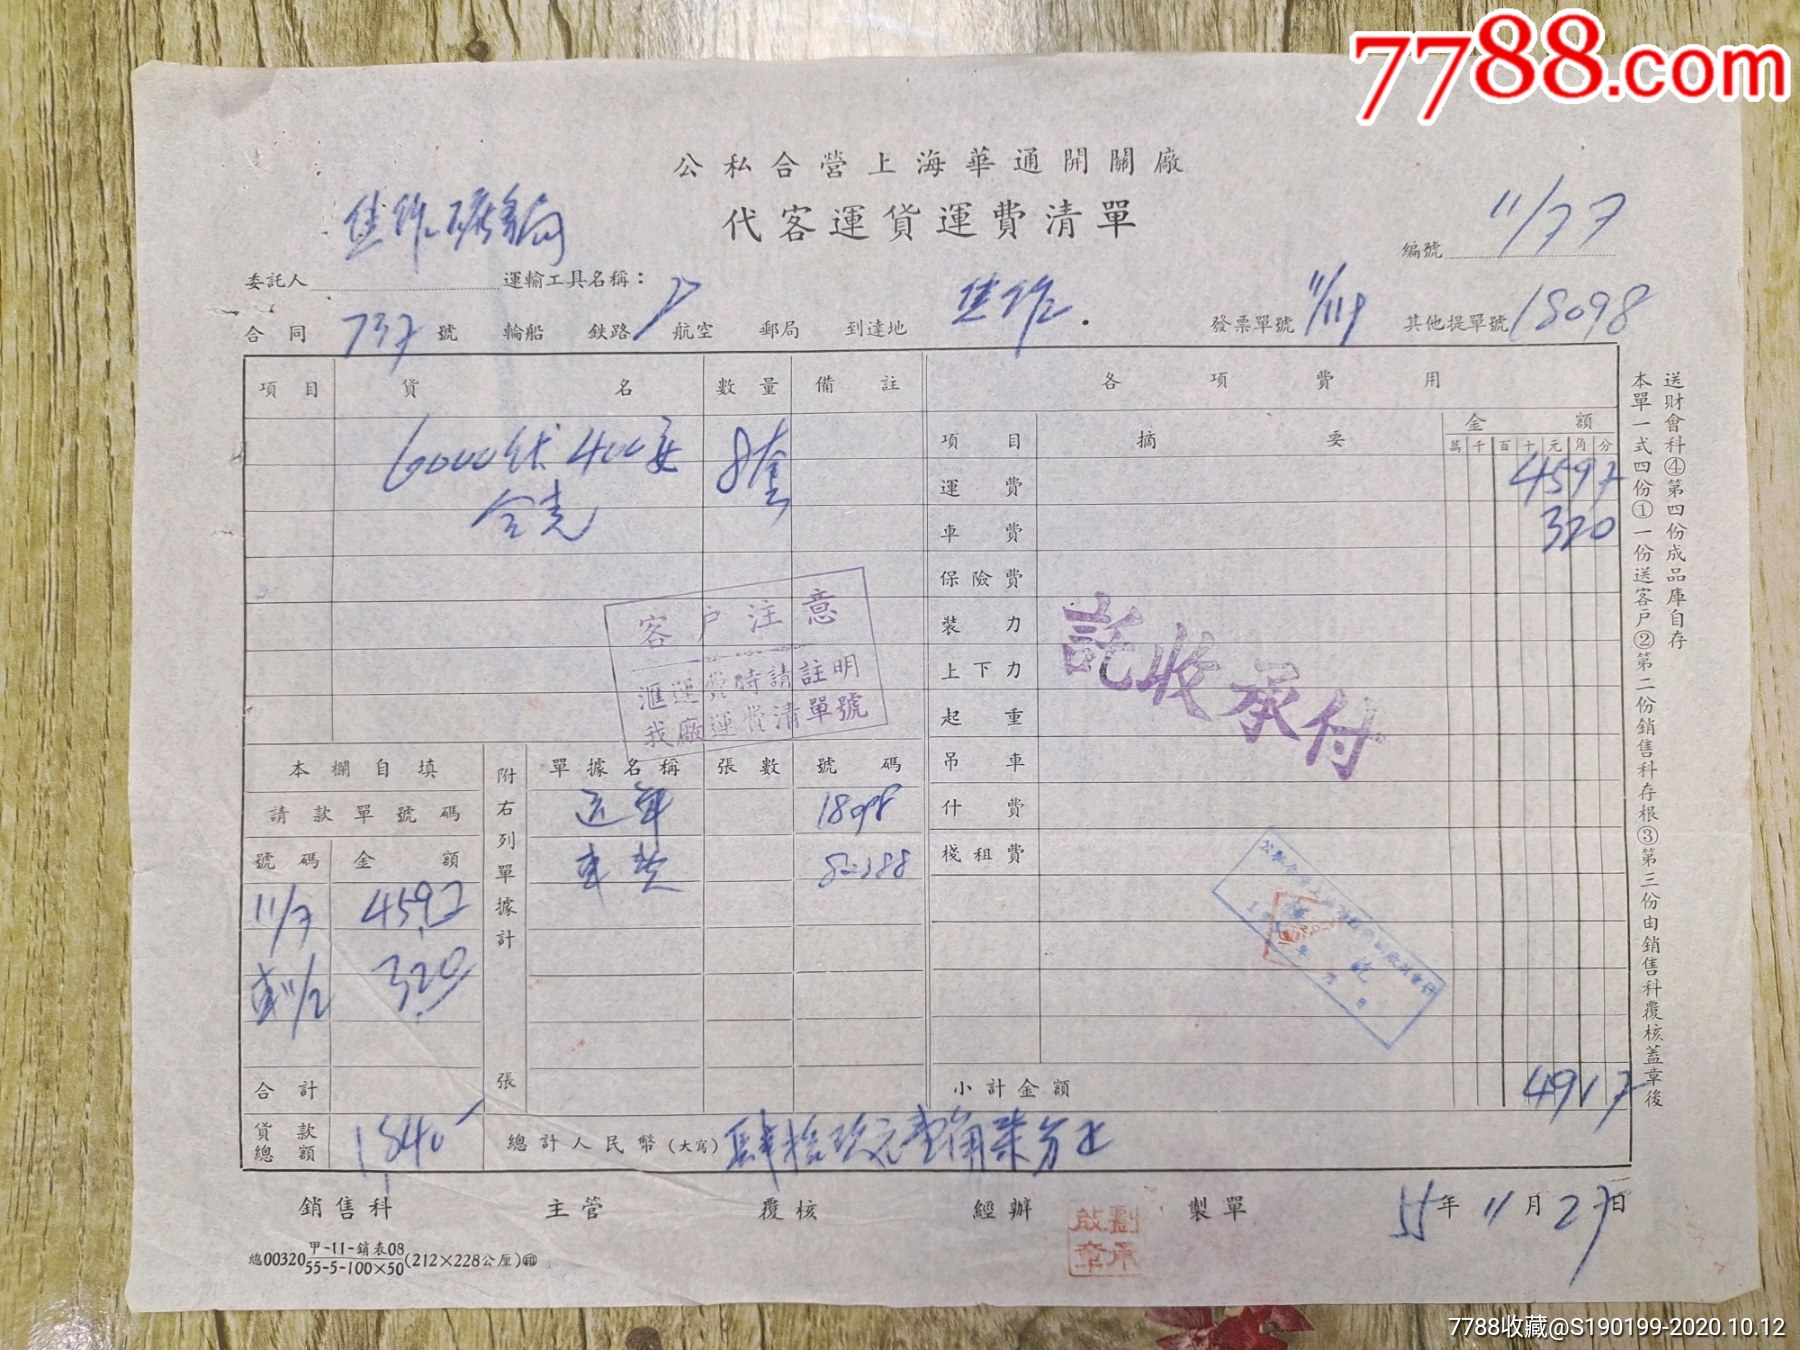 7788.com
公私合營上海華通開關廠
代客運貨運費清單
編號 11/77
委託人 焦作礦務局 運輸工具名稱：
合同 737 號 輪船 鉄路 航空 郵局 到達地 焦作 發票單號 11/119 其他提單號 18098
項目 貨名 數量 備註 各項費用
項目 摘要 金額
萬 千 百 十 元 角 分
6000伏400安 8套
運費 4597
車費 320
保險費
裝力
上下力
起重
吊車
什費
棧租費
客户注意
滙運費時請註明
我廠運費清單號
託收承付
本欄自填
請款單號碼
號碼 金額
11/7 45.97
11/2 3.20
合計
附右列單據計 張
單據名稱 張數 號碼
18098
車費 82388
小計金額 4917
貨款總額 1,840
總計人民幣（大寫）肆拾玖元壹角柒分正
銷售科 主管 覆核 經辦 製單 55年11月27日
劉承啟章
總00320 甲-11-銷表08 55-5-100×50 (212×228公厘)
本單一式四份①一份送客戶②第二份銷售科存根③第三份由銷售科覆核蓋章後
送財會科④第四份成品庫自存
7788收藏@S190199-2020.10.12